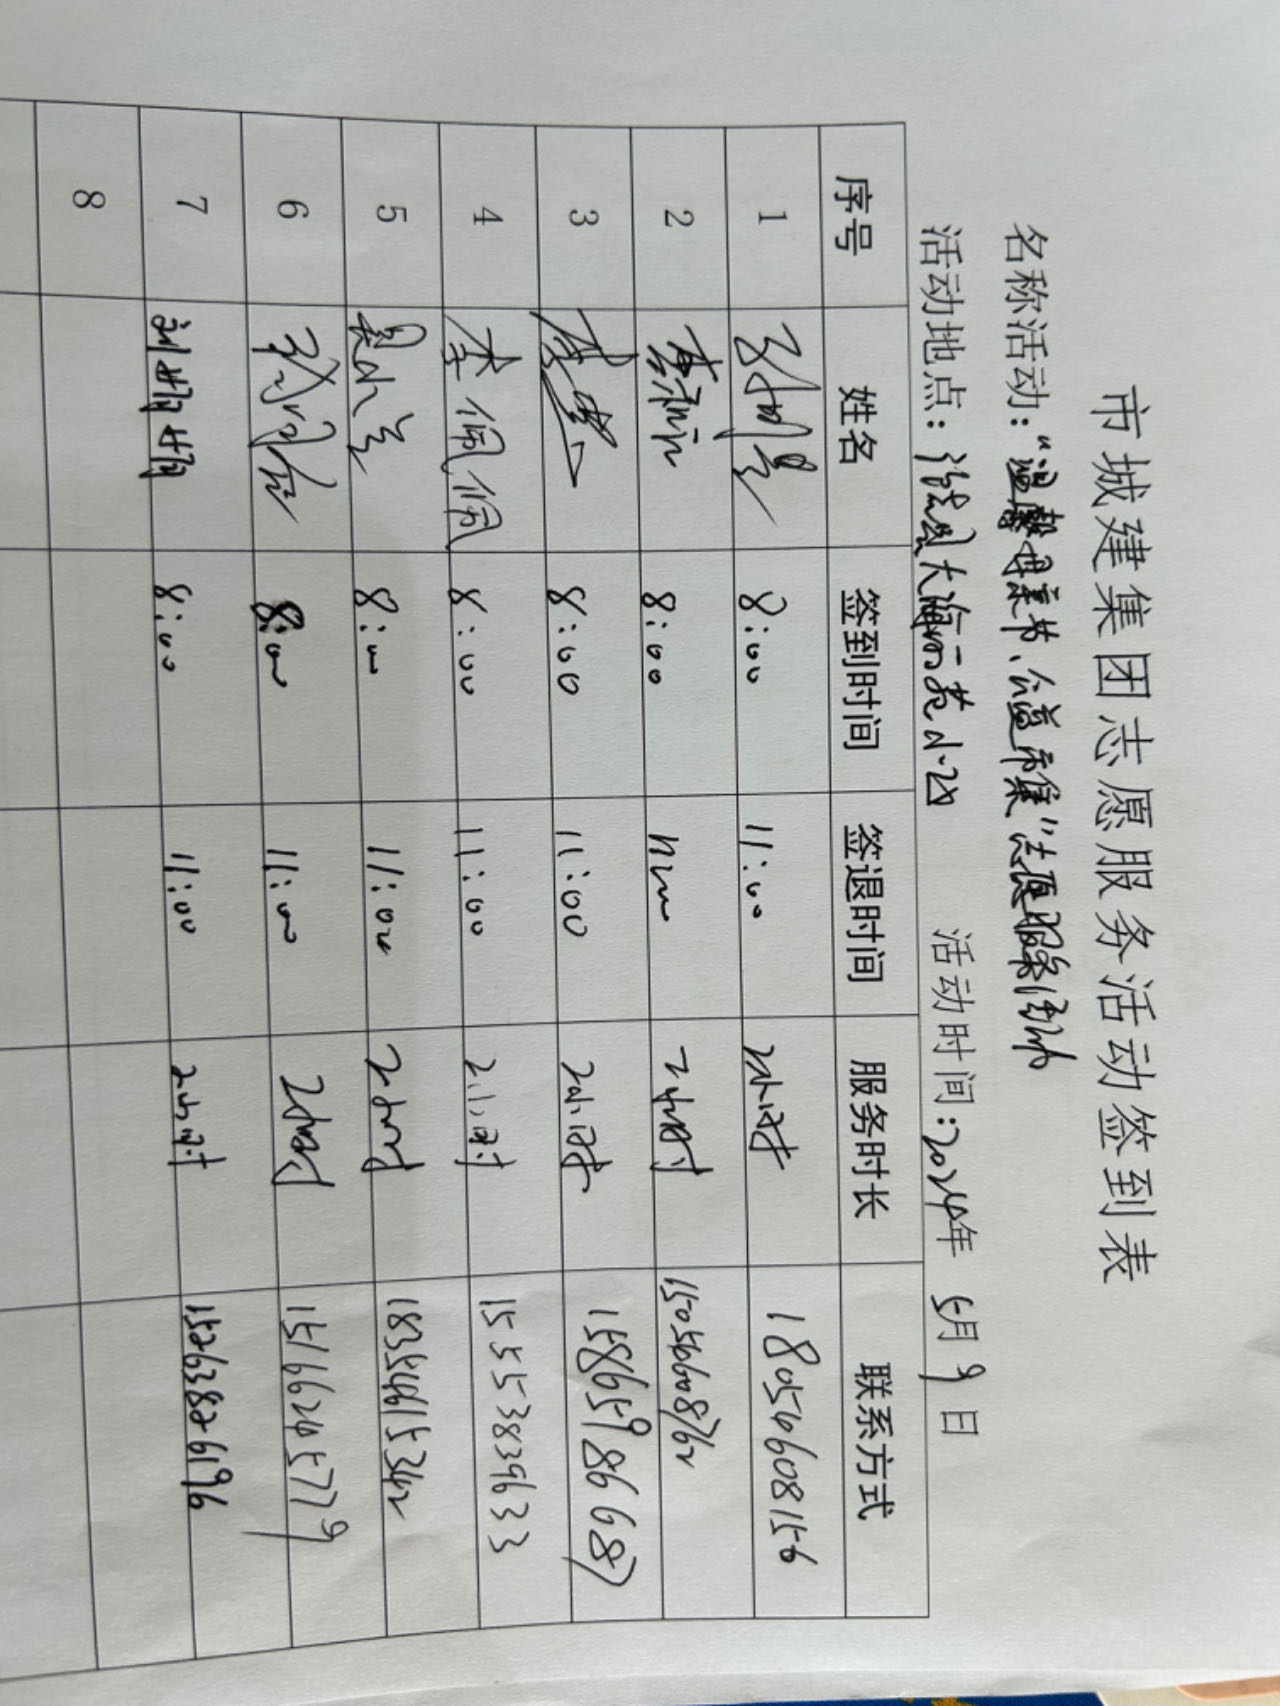 市城建集团志愿服务活动签到表
名称活动：“温馨母亲节、公益市集”志愿服务活动
活动地点： 大 苑小区 活动时间：2024年 5月9日
序号 姓名 签到时间 签退时间 服务时长 联系方式
1 8:00 11:00 2小时 18056608156
2 8:00 11:00 2小时
3 8:00 11:00 2小时 15865986687
4 李佩佩 8:00 11:00 2小时 15553839633
5 8:00 11:00 2小时
6 8:00 11:00 2小时 15166245779
7 刘丹丹 8:00 11:00 2小时 15263826196
8